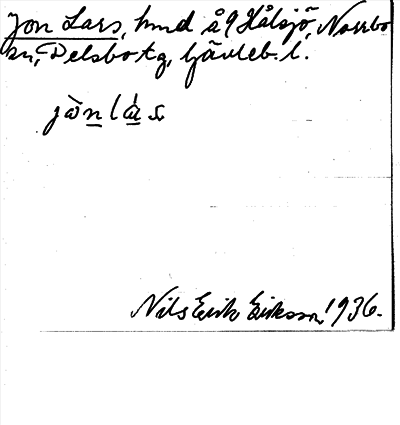 Jon Lars, hmd å 9 Hålsjö, Norrbo
sn, Delsbo tg, Gävleb. l.
jὼn lás
Nils Erik Eriksson 1936.